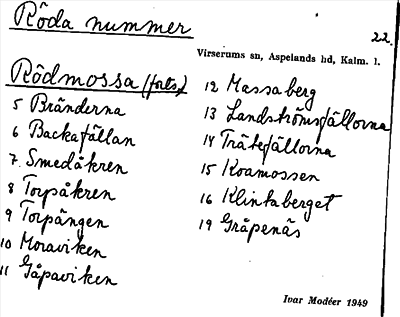 Röda nummer
22.
Virserums sn, Aspelands hd, Kalm. l.
Rödmossa (forts.)
5 Bränderna
6 Backafällan
7. Smedåkren
8 Torpåkren
9 Torpängen
10 Moraviken
11 Gåpaviken
12 Massaberg
13 Landströmsfällorna
14 Träbefällorna
15 Koamossen
16 Klintaberget
19 Gråpenäs
Ivar Modéer 1949